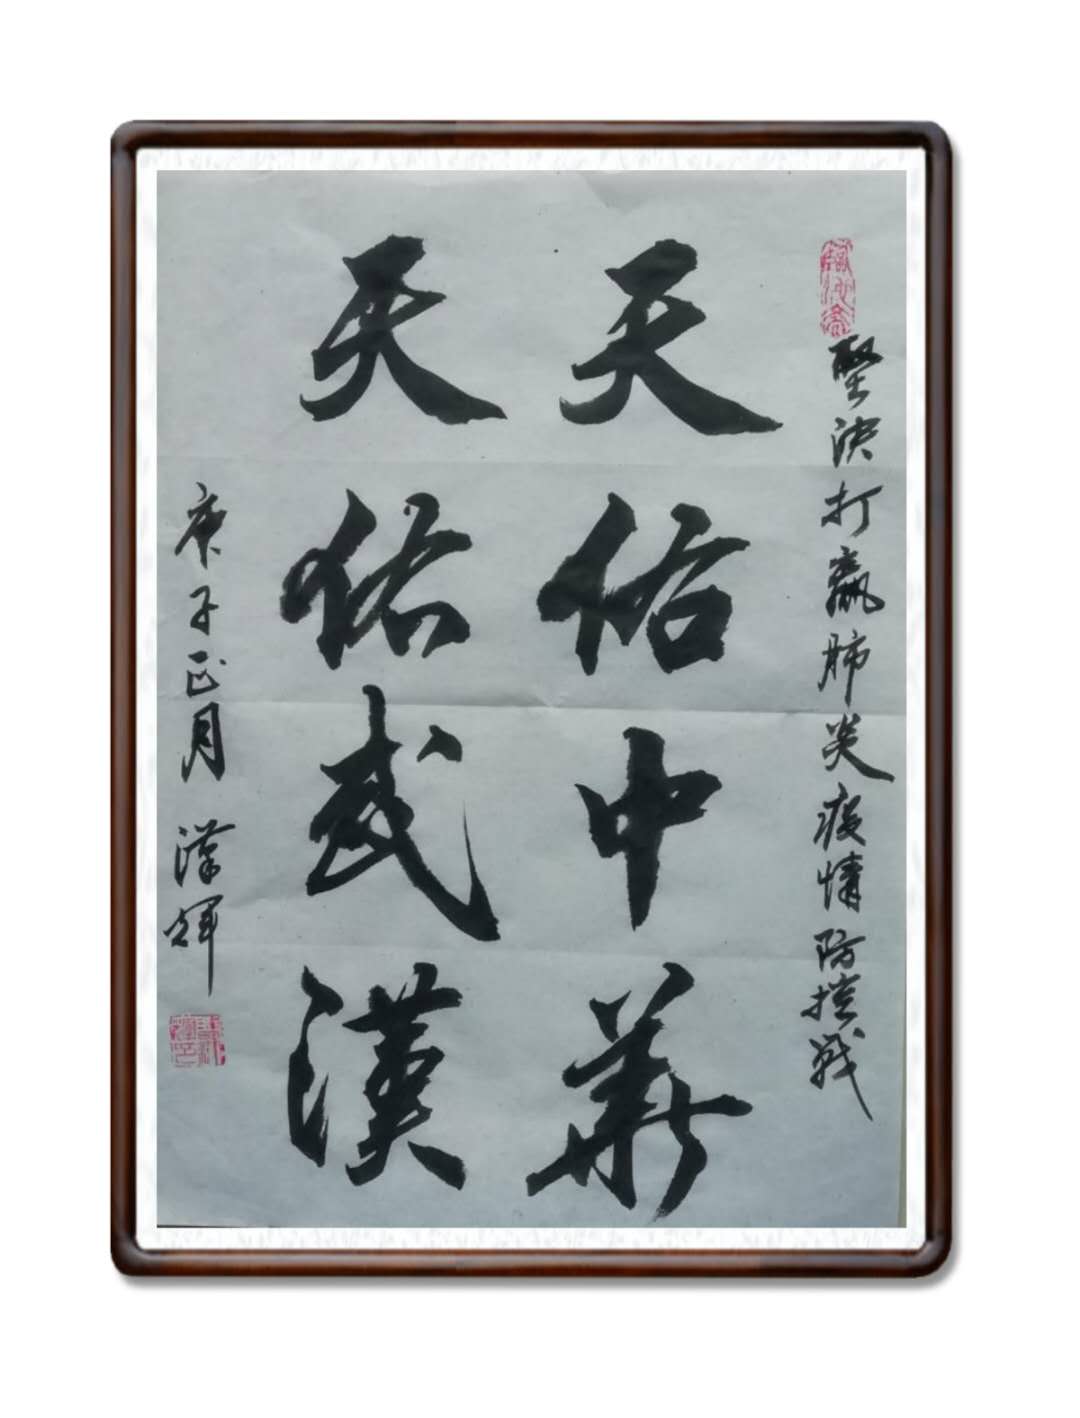 堅决打贏肺炎疫情防控战
天佑中華
天佑武漢
庚子正月 漢輝